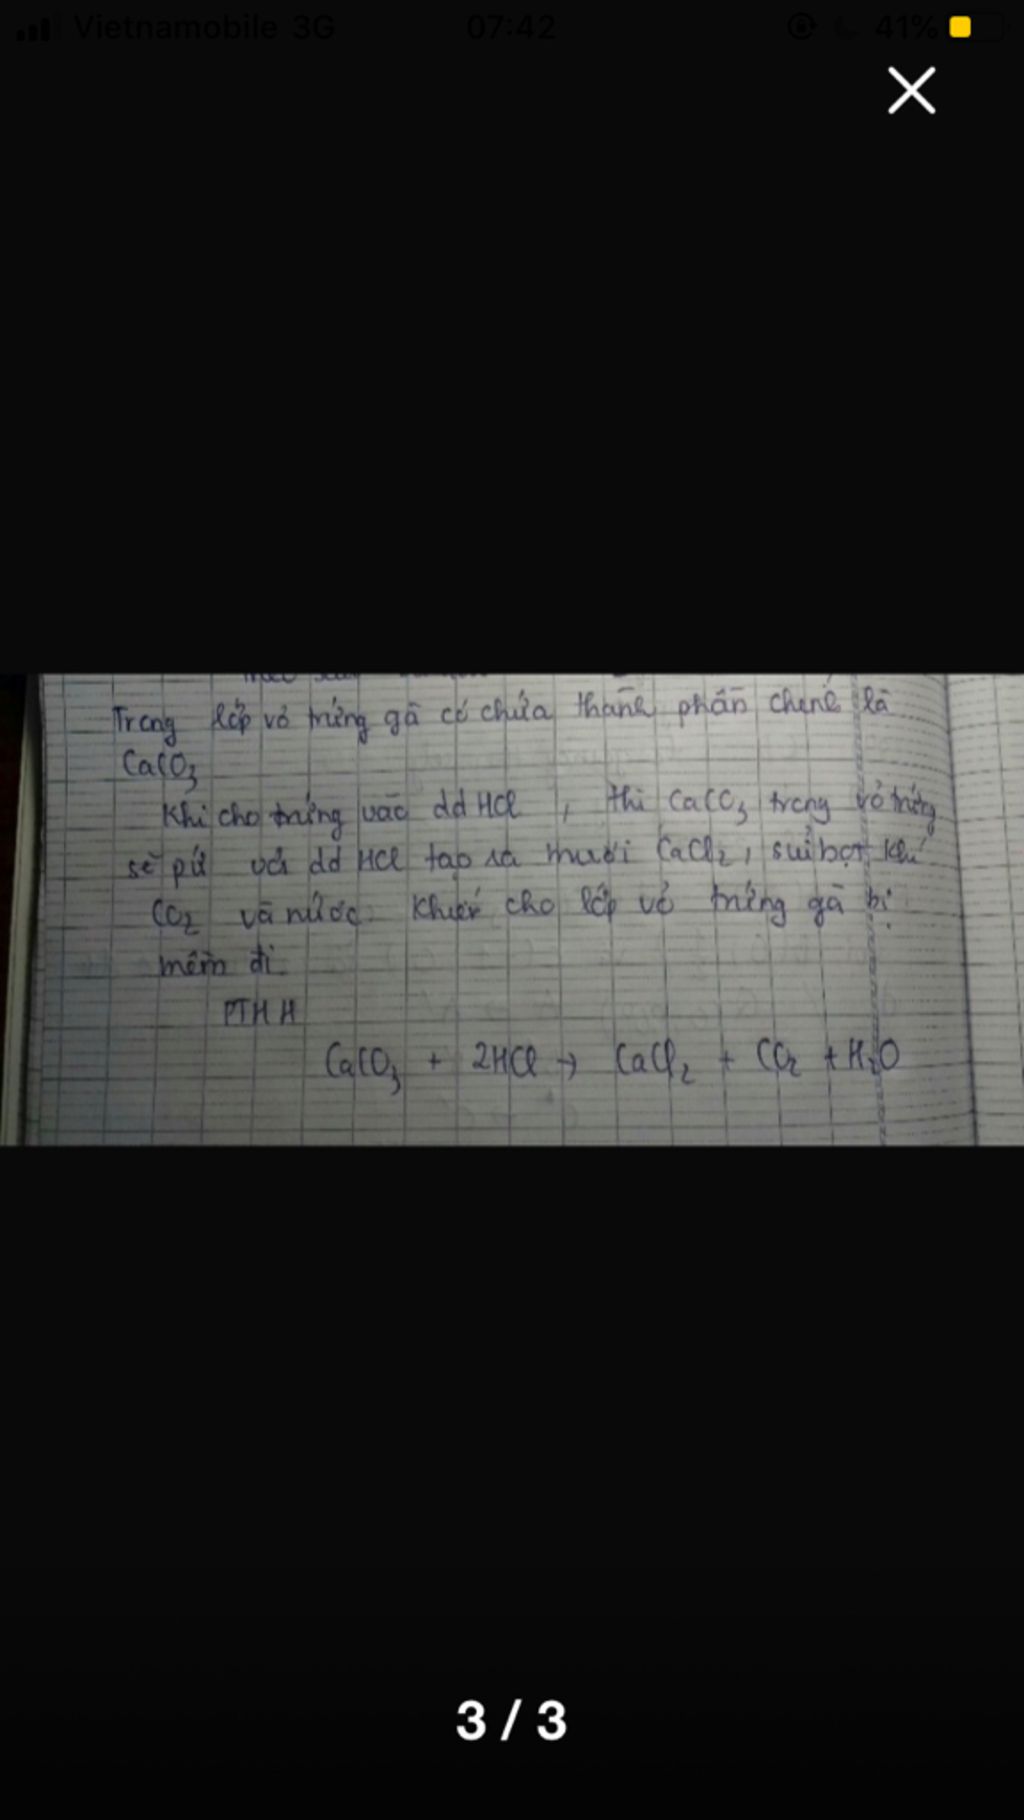 Vietnamobile 3G 07:42 41%
Trong lớp vỏ trứng gà có chứa thành phần chính là
CaCO3
Khi cho trứng vào dd HCl, thì CaCO3 trong vỏ trứng
sẽ pứ với dd HCl tạo ra muối CaCl2, sủi bọt khí
CO2 và nước. Khiến cho lớp vỏ trứng gà bị
mềm đi
PTHH
CaCO3 + 2HCl → CaCl2 + CO2 + H2O
3 / 3